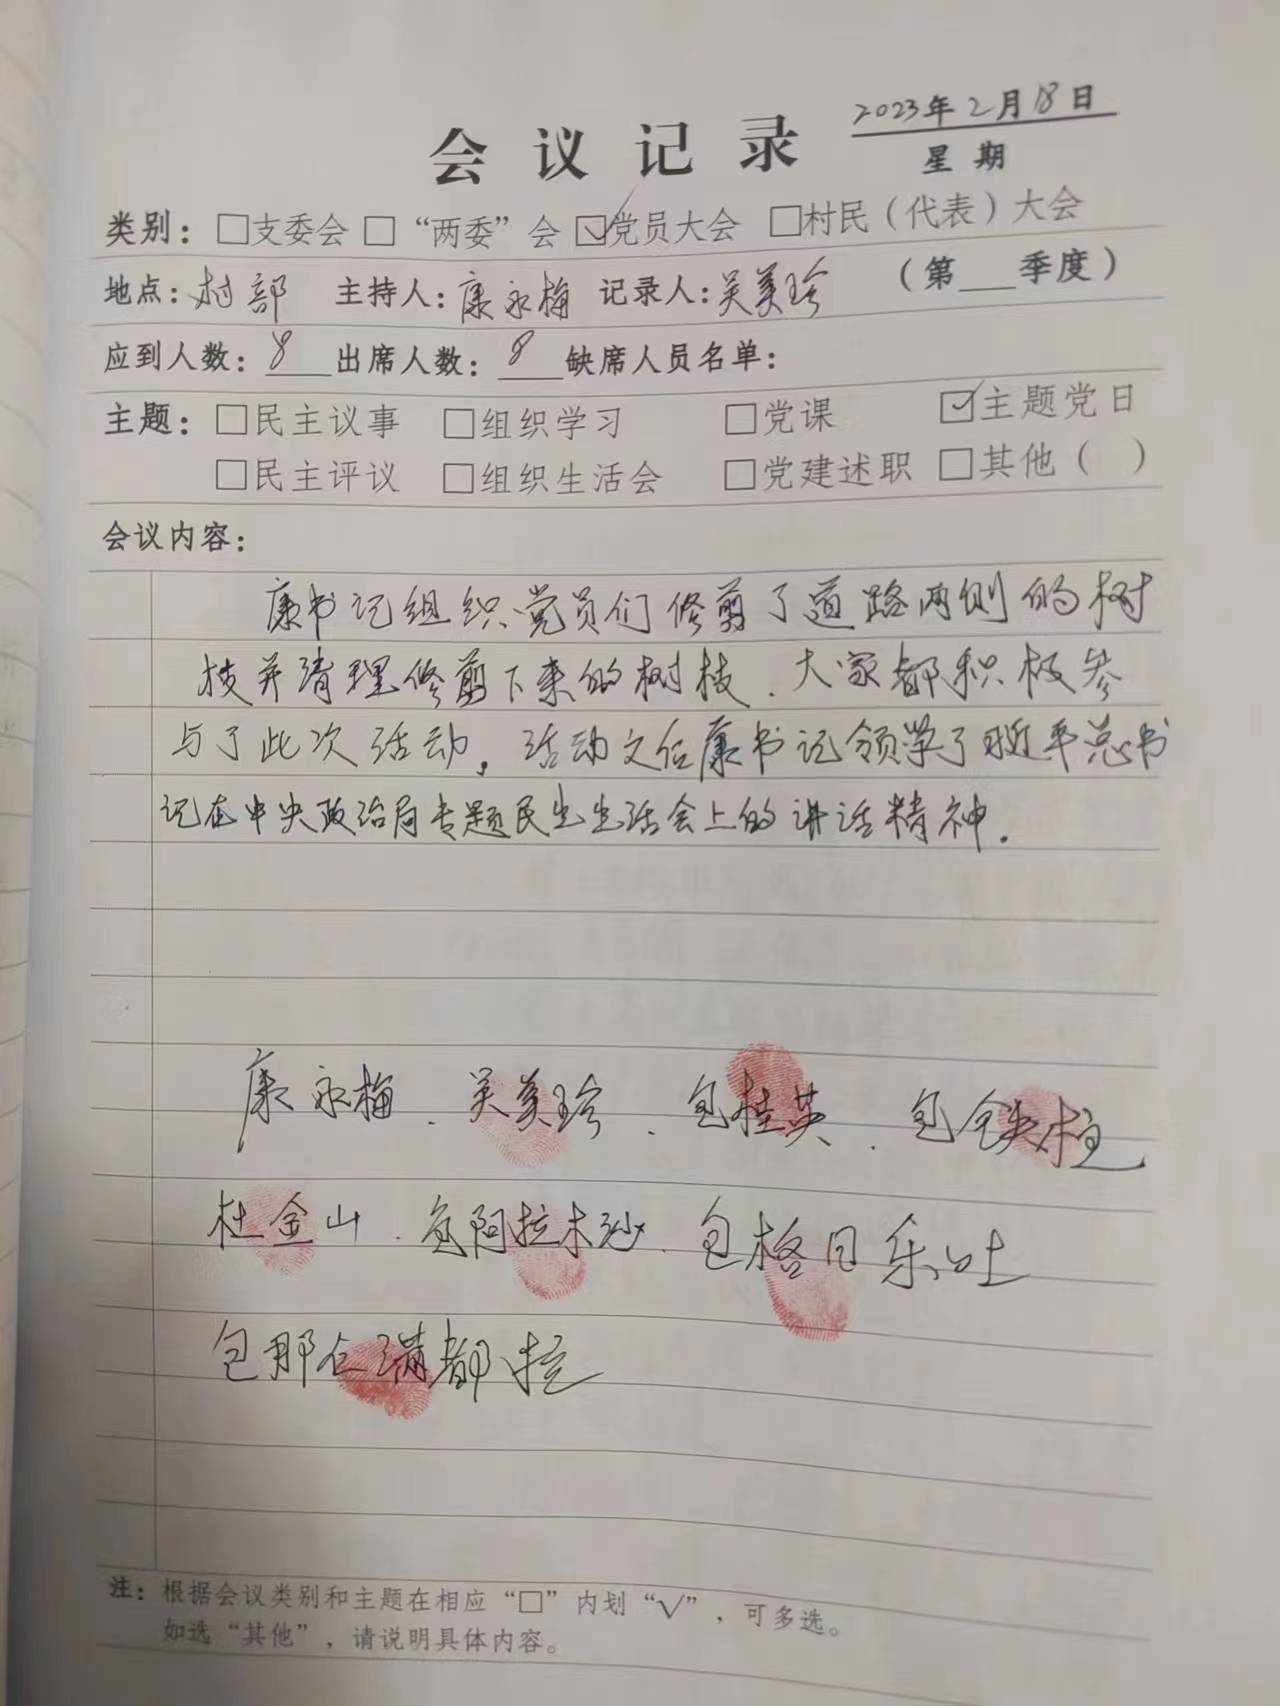 会议记录 2023年2月18日
星期
类别：□支委会 □“两委”会 ☑党员大会 □村民（代表）大会
地点：村部 主持人：康永梅 记录人：吴美珍 （第___季度）
应到人数：8 出席人数：8 缺席人员名单：
主题：□民主议事 □组织学习 □党课 ☑主题党日
□民主评议 □组织生活会 □党建述职 □其他（ ）
会议内容：
康书记组织党员们修剪了道路两侧的树
枝并清理修剪下来的树枝．大家都积极参
与了此次活动，活动之后康书记领学了习近平总书
记在中央政治局专题民主生活会上的讲话精神．
康永梅．吴美珍．包桂英．包铁柱
杜金山．包阿拉木沙．包格日乐吐
包那仁满都拉
注：根据会议类别和主题在相应“□”内划“√”，可多选。
如选“其他”，请说明具体内容。